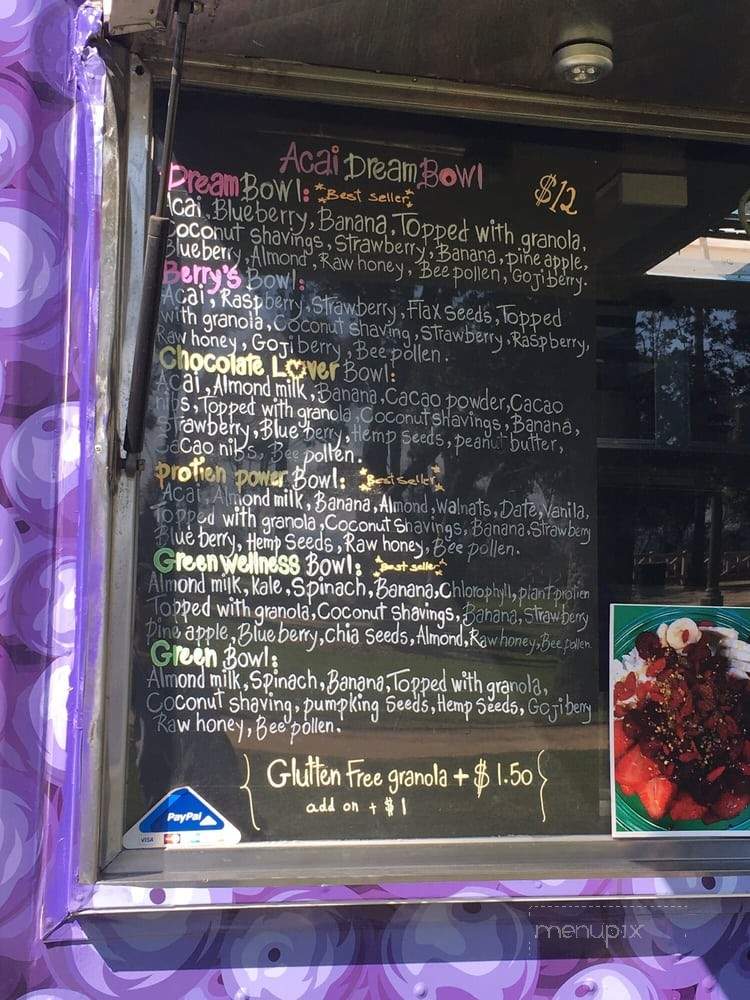 Acai Dream Bowl
$12
Dream Bowl: Best seller
Acai, Blueberry, Banana, Topped with granola,
Coconut shavings, Strawberry, Banana, pineapple,
Blueberry, Almond, Raw honey, Bee pollen, Goji berry.
Berry's Bowl:
Acai, Raspberry, Strawberry, Flax seeds, Topped
with granola, Coconut shaving, Strawberry, Raspberry,
Raw honey, Goji berry, Bee pollen.
Chocolate Lover Bowl:
Acai, Almond milk, Banana, Cacao powder, Cacao
nibs, Topped with granola, Coconut shavings, Banana,
Strawberry, Blue berry, Hemp seeds, peanut butter,
Cacao nibs, Bee pollen.
protien power Bowl: Best seller
Acai, Almond milk, Banana, Almond, Walnats, Date, Vanila,
Topped with granola, Coconut shavings, Banana, Strawberry
Blue berry, Hemp Seeds, Raw honey, Bee pollen.
Green wellness Bowl: Best seller
Almond milk, Kale, Spinach, Banana, Chlorophyll, plant protien
Topped with granola, Coconut shavings, Banana, Strawberry
Pine apple, Blue berry, chia seeds, Almond, Raw honey, Bee pollen.
Green Bowl:
Almond milk, Spinach, Banana, Topped with granola,
Coconut shaving, pumpking Seeds, Hemp Seeds, Goji berry
Raw honey, Bee pollen.
{ Glutten Free granola + $1.50 }
add on + $1
PayPal
VISA
menupix